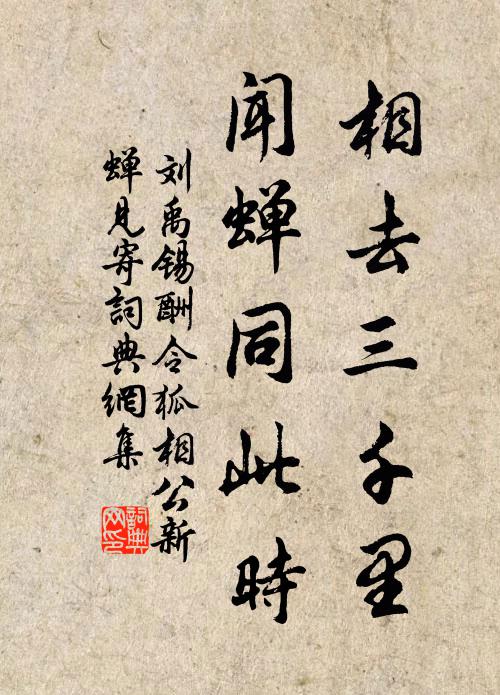 相去三千里
闻蝉同此時
刘禹锡酬令狐相公新
蝉见寄詞典網集
詞典网印